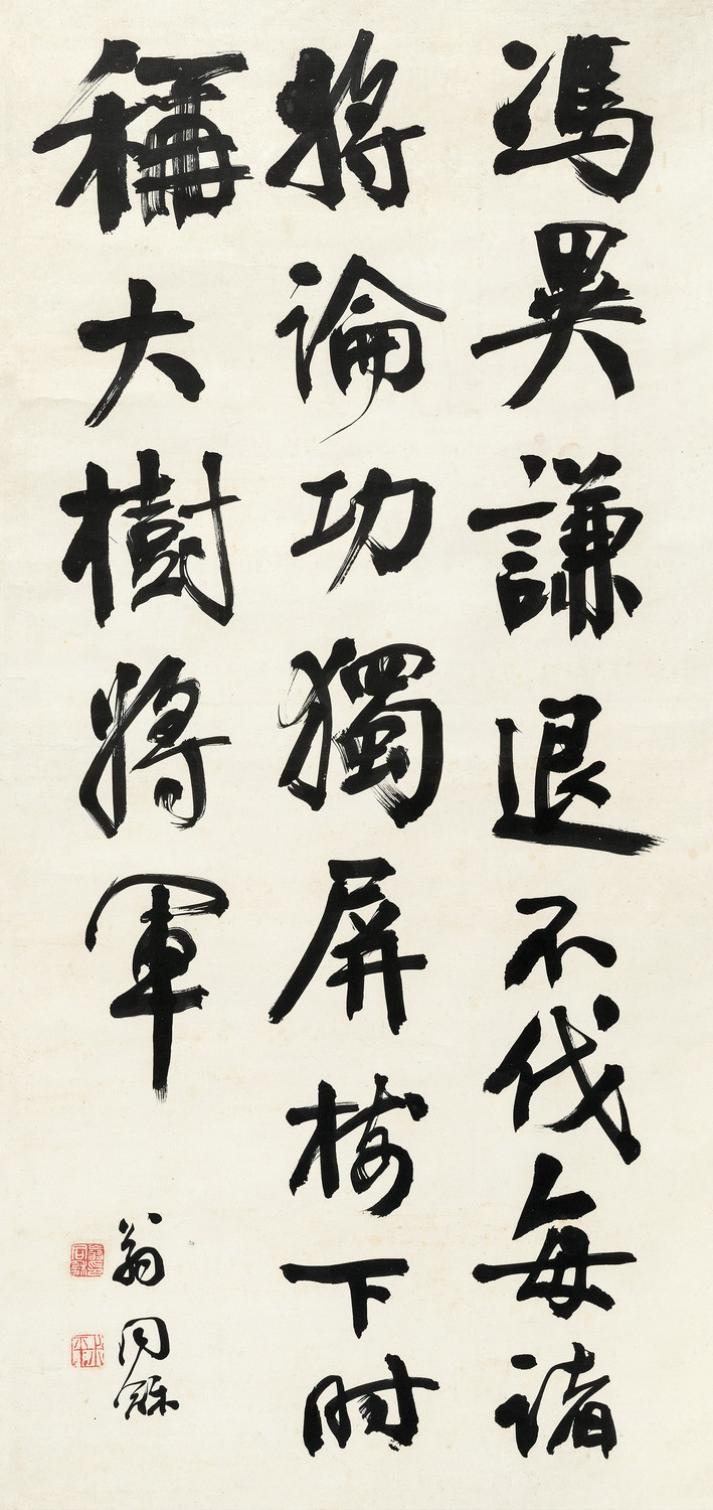 馮異謙退不伐每諸
將論功獨屏樹下時
稱大樹將軍
翁同龢
叔平